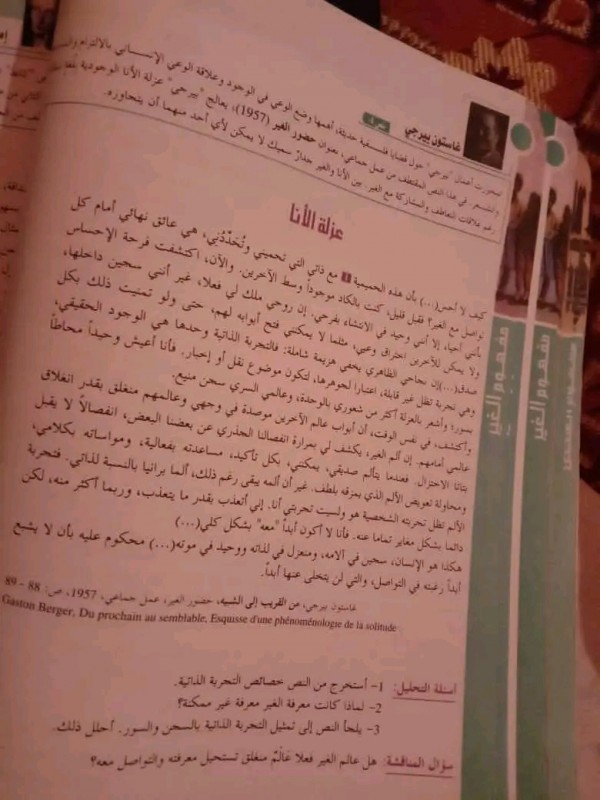 غاستون بيرجي
تمحورت أعمال "بيرجي" حول قضايا فلسفية حديثة، أهمها وضع الوعي في الوجود وعلاقة الوعي الإنساني بالالتزام
في هذا النص المقتطف من عمل جماعي، بعنوان حضور الغير (1957)، يعالج "بيرجي" عزلة الأنا الوجودية
رغم علاقات التعاطف والمشاركة مع الغير. بين الأنا والغير جدار سميك لا يمكن لأي أحد منهما أن يتجاوزه.
عزلة الأنا
كيف لا أحس(...) بأن هذه الحميمية 1 مع ذاتي التي تحميني وتُحَدِّدُني، هي عائق نهائي أمام كل
تواصل مع الغير؟ فقبل قليل، كنت بالكاد موجوداً وسط الآخرين. والآن، اكتشفت فرحة الإحساس
بأنني أحيا، إلا أنني وحيد في الانتشاء بفرحي. إن روحي ملك لي فعلا، غير أنني سجين داخلها،
ولا يمكن للآخرين اختراق وعيي، مثلما لا يمكنني فتح أبوابه لهم، حتى ولو تمنيت ذلك بكل
صدق(...)إن نجاحي الظاهري يخفي هزيمة شاملة: فالتجربة الذاتية وحدها هي الوجود الحقيقي،
وهي تجربة تظل غير قابلة، اعتبارا لجوهرها، لتكون موضوع نقل أو إخبار. فأنا أعيش وحيداً محاطاً
بسور وأشعر بالعزلة أكثر من شعوري بالوحدة، وعالمي السري سجن منيع.
وأكتشف، في نفس الوقت، أن أبواب عالم الآخرين موصدة في وجهي وعالمهم منغلق بقدر انغلاق
عالمي أمامهم. إن ألم الغير، يكشف لي بمرارة انفصالنا الجذري عن بعضنا البعض، انفصالاً لا يقبل
بتاتا الاختزال. فعندما يتألم صديقي، يمكنني، بكل تأكيد، مساعدته بفعالية، ومواساته بكلامي،
ومحاولة تعويض الألم الذي يمزقه بلطف. غير أن ألمه يبقى رغم ذلك، ألما برانيا بالنسبة لذاتي. فتجربة
الألم تظل تجربته الشخصية هو وليست تجربتي أنا. إني أتعذب بقدر ما يتعذب، وربما أكثر منه، لكن
دائما بشكل مغاير تماما عنه. فأنا لا أكون أبداً "معه" بشكل كلي(...)
هكذا هو الإنسان، سجين في آلامه، ومنعزل في لذاته ووحيد في موته(...) محكوم عليه بأن لا يشبع
أبداً رغبته في التواصل، والتي لن يتخلى عنها أبداً.
غاستون بيرجي، من القريب إلى الشبيه، حضور الغير، عمل جماعي، 1957، ص: 88 - 89
Gaston Berger, Du prochain au semblable, Esquisse d'une phénoménologie de la solitude
أسئلة التحليل: 1- أستخرج من النص خصائص التجربة الذاتية.
2- لماذا كانت معرفة الغير معرفة غير ممكنة؟
3- يلجأ النص إلى تمثيل التجربة الذاتية بالسجن والسور. أحلل ذلك.
سؤال المناقشة: هل عالم الغير فعلا عَالَمٌ منغلق تستحيل معرفته والتواصل معه؟
مفهوم الغير
مفهوم الغير